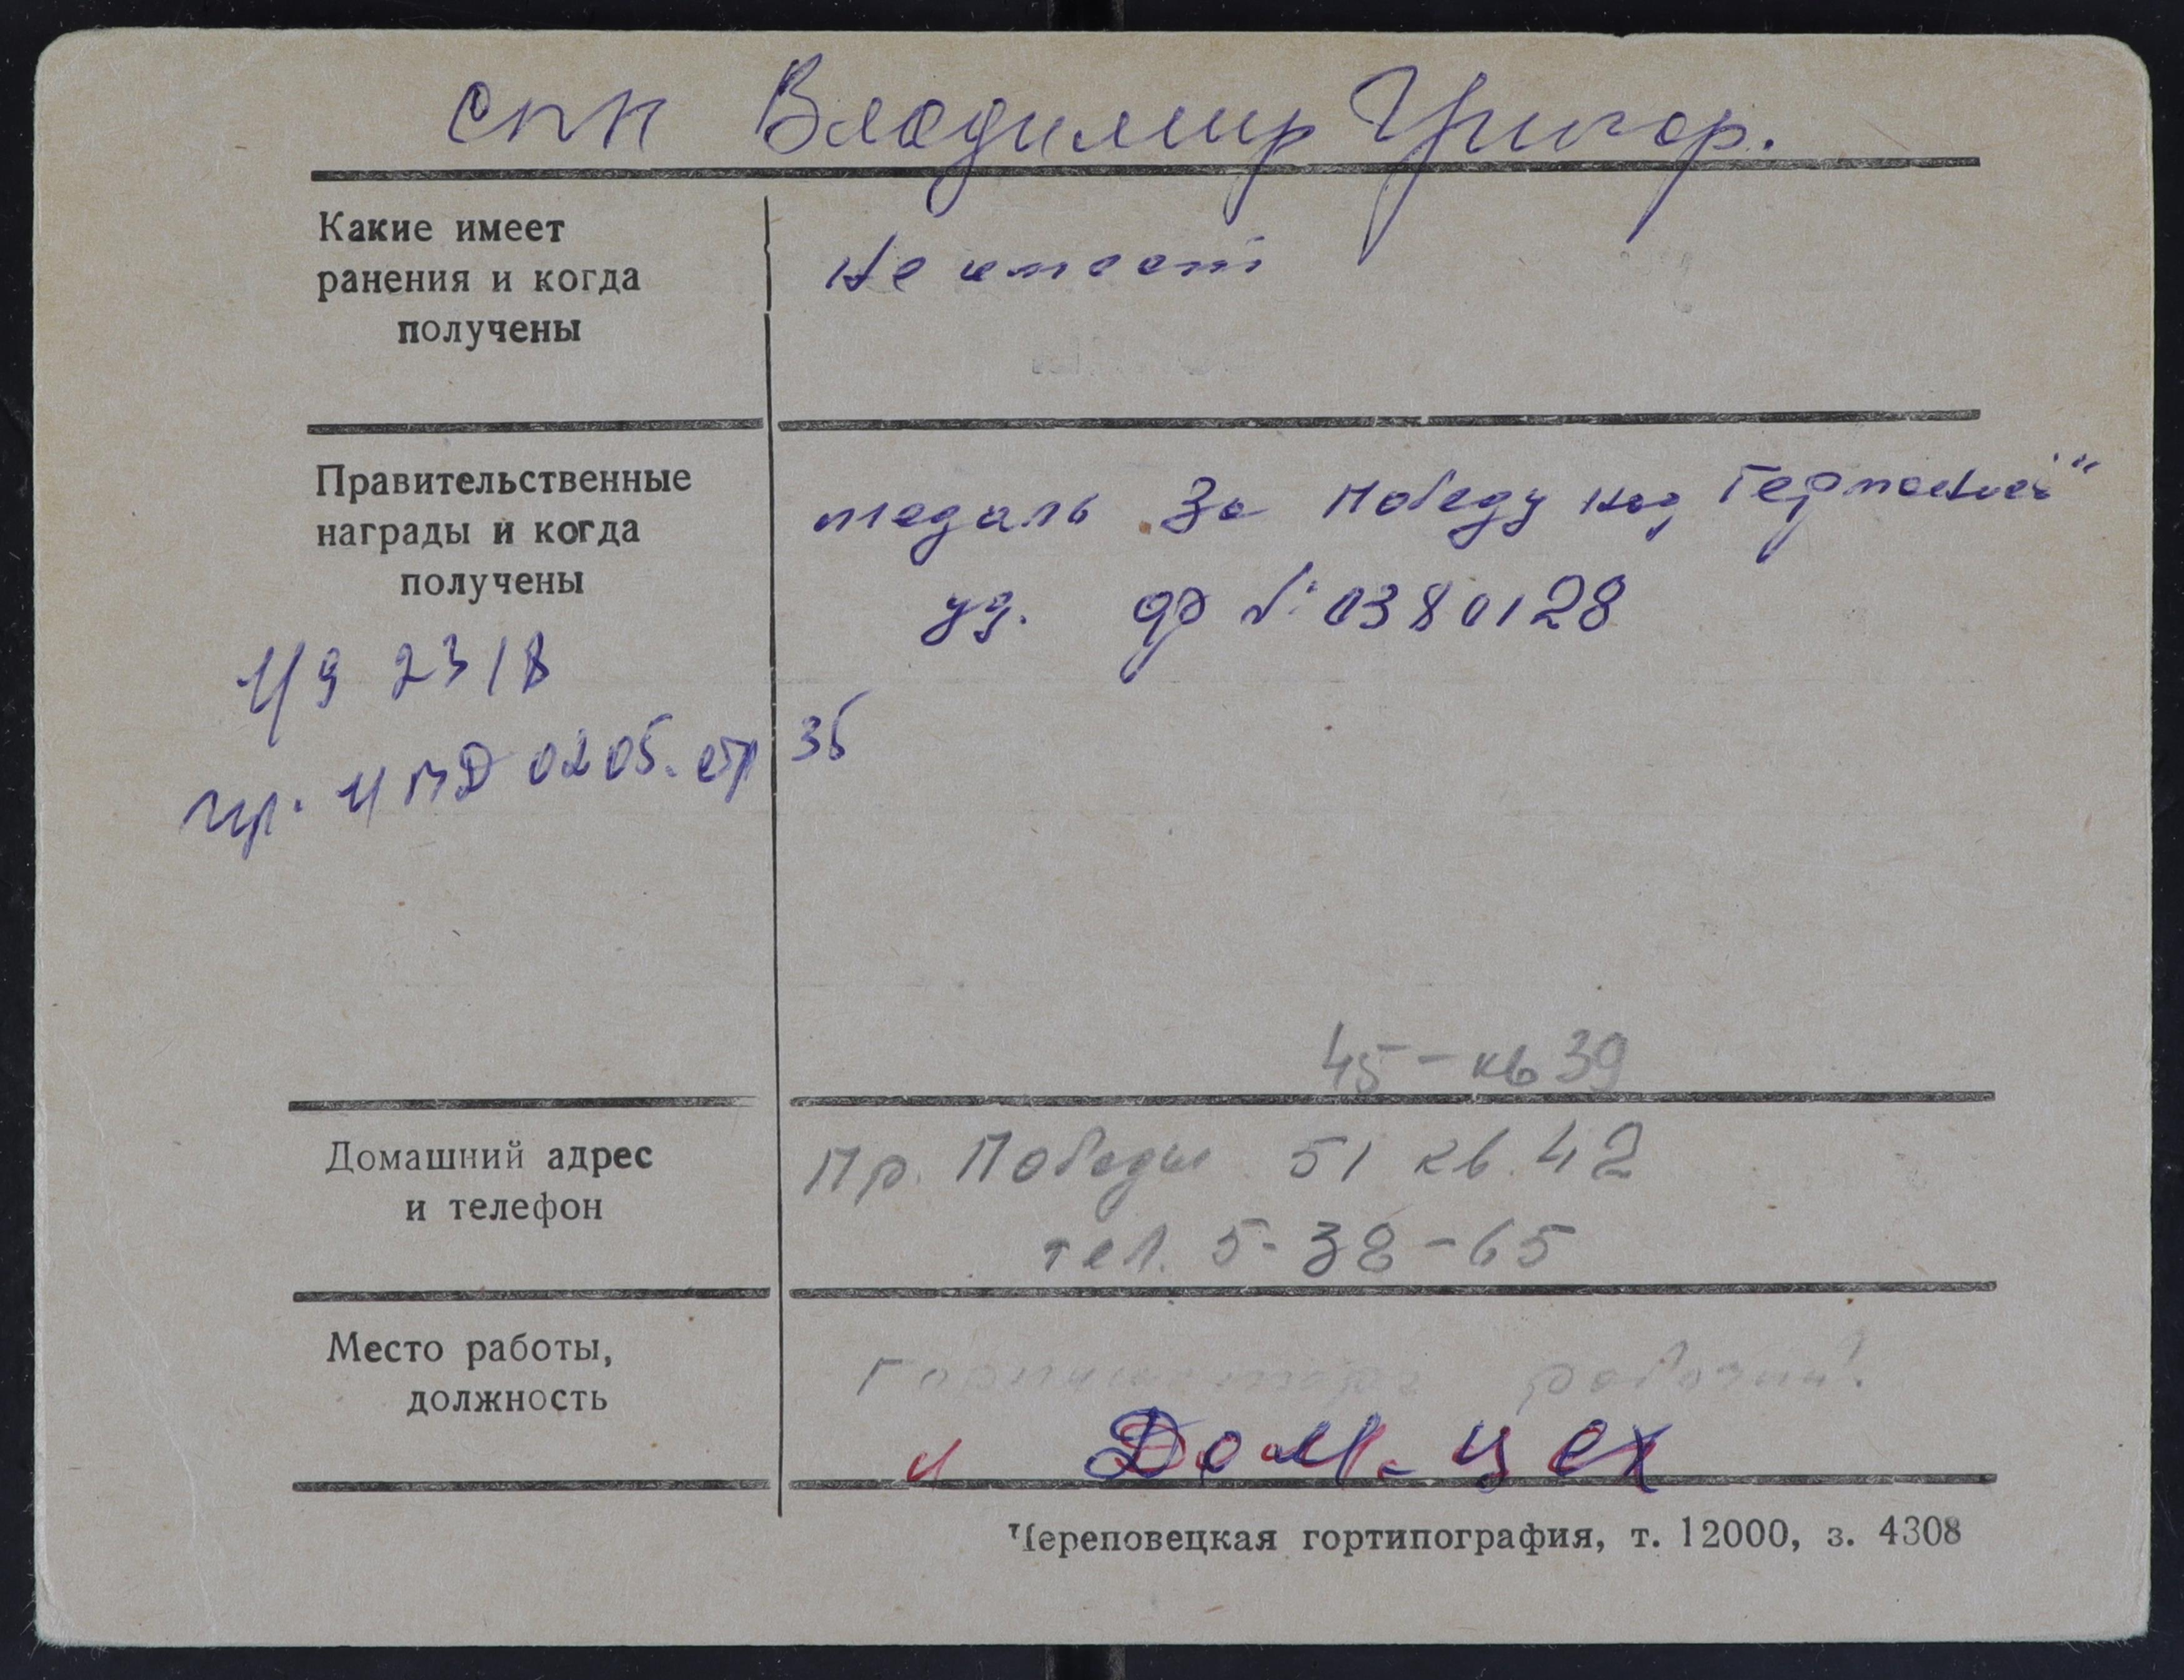 Владимир Григор.
Какие имеет
ранения и когда
получены
не имеет
Правительственные
награды и когда
получены
медаль За Победу над Германией"
уд. ф № 0380128
2318
пр. 0205. стр 36
45 - кв 39
Домашний адрес
и телефон
Пр. Победы 51 кв. 42
тел. 5-38-65
Место работы,
должность
рабочий.
Дом. цех
Череповецкая гортипография, т. 12000, з. 4308